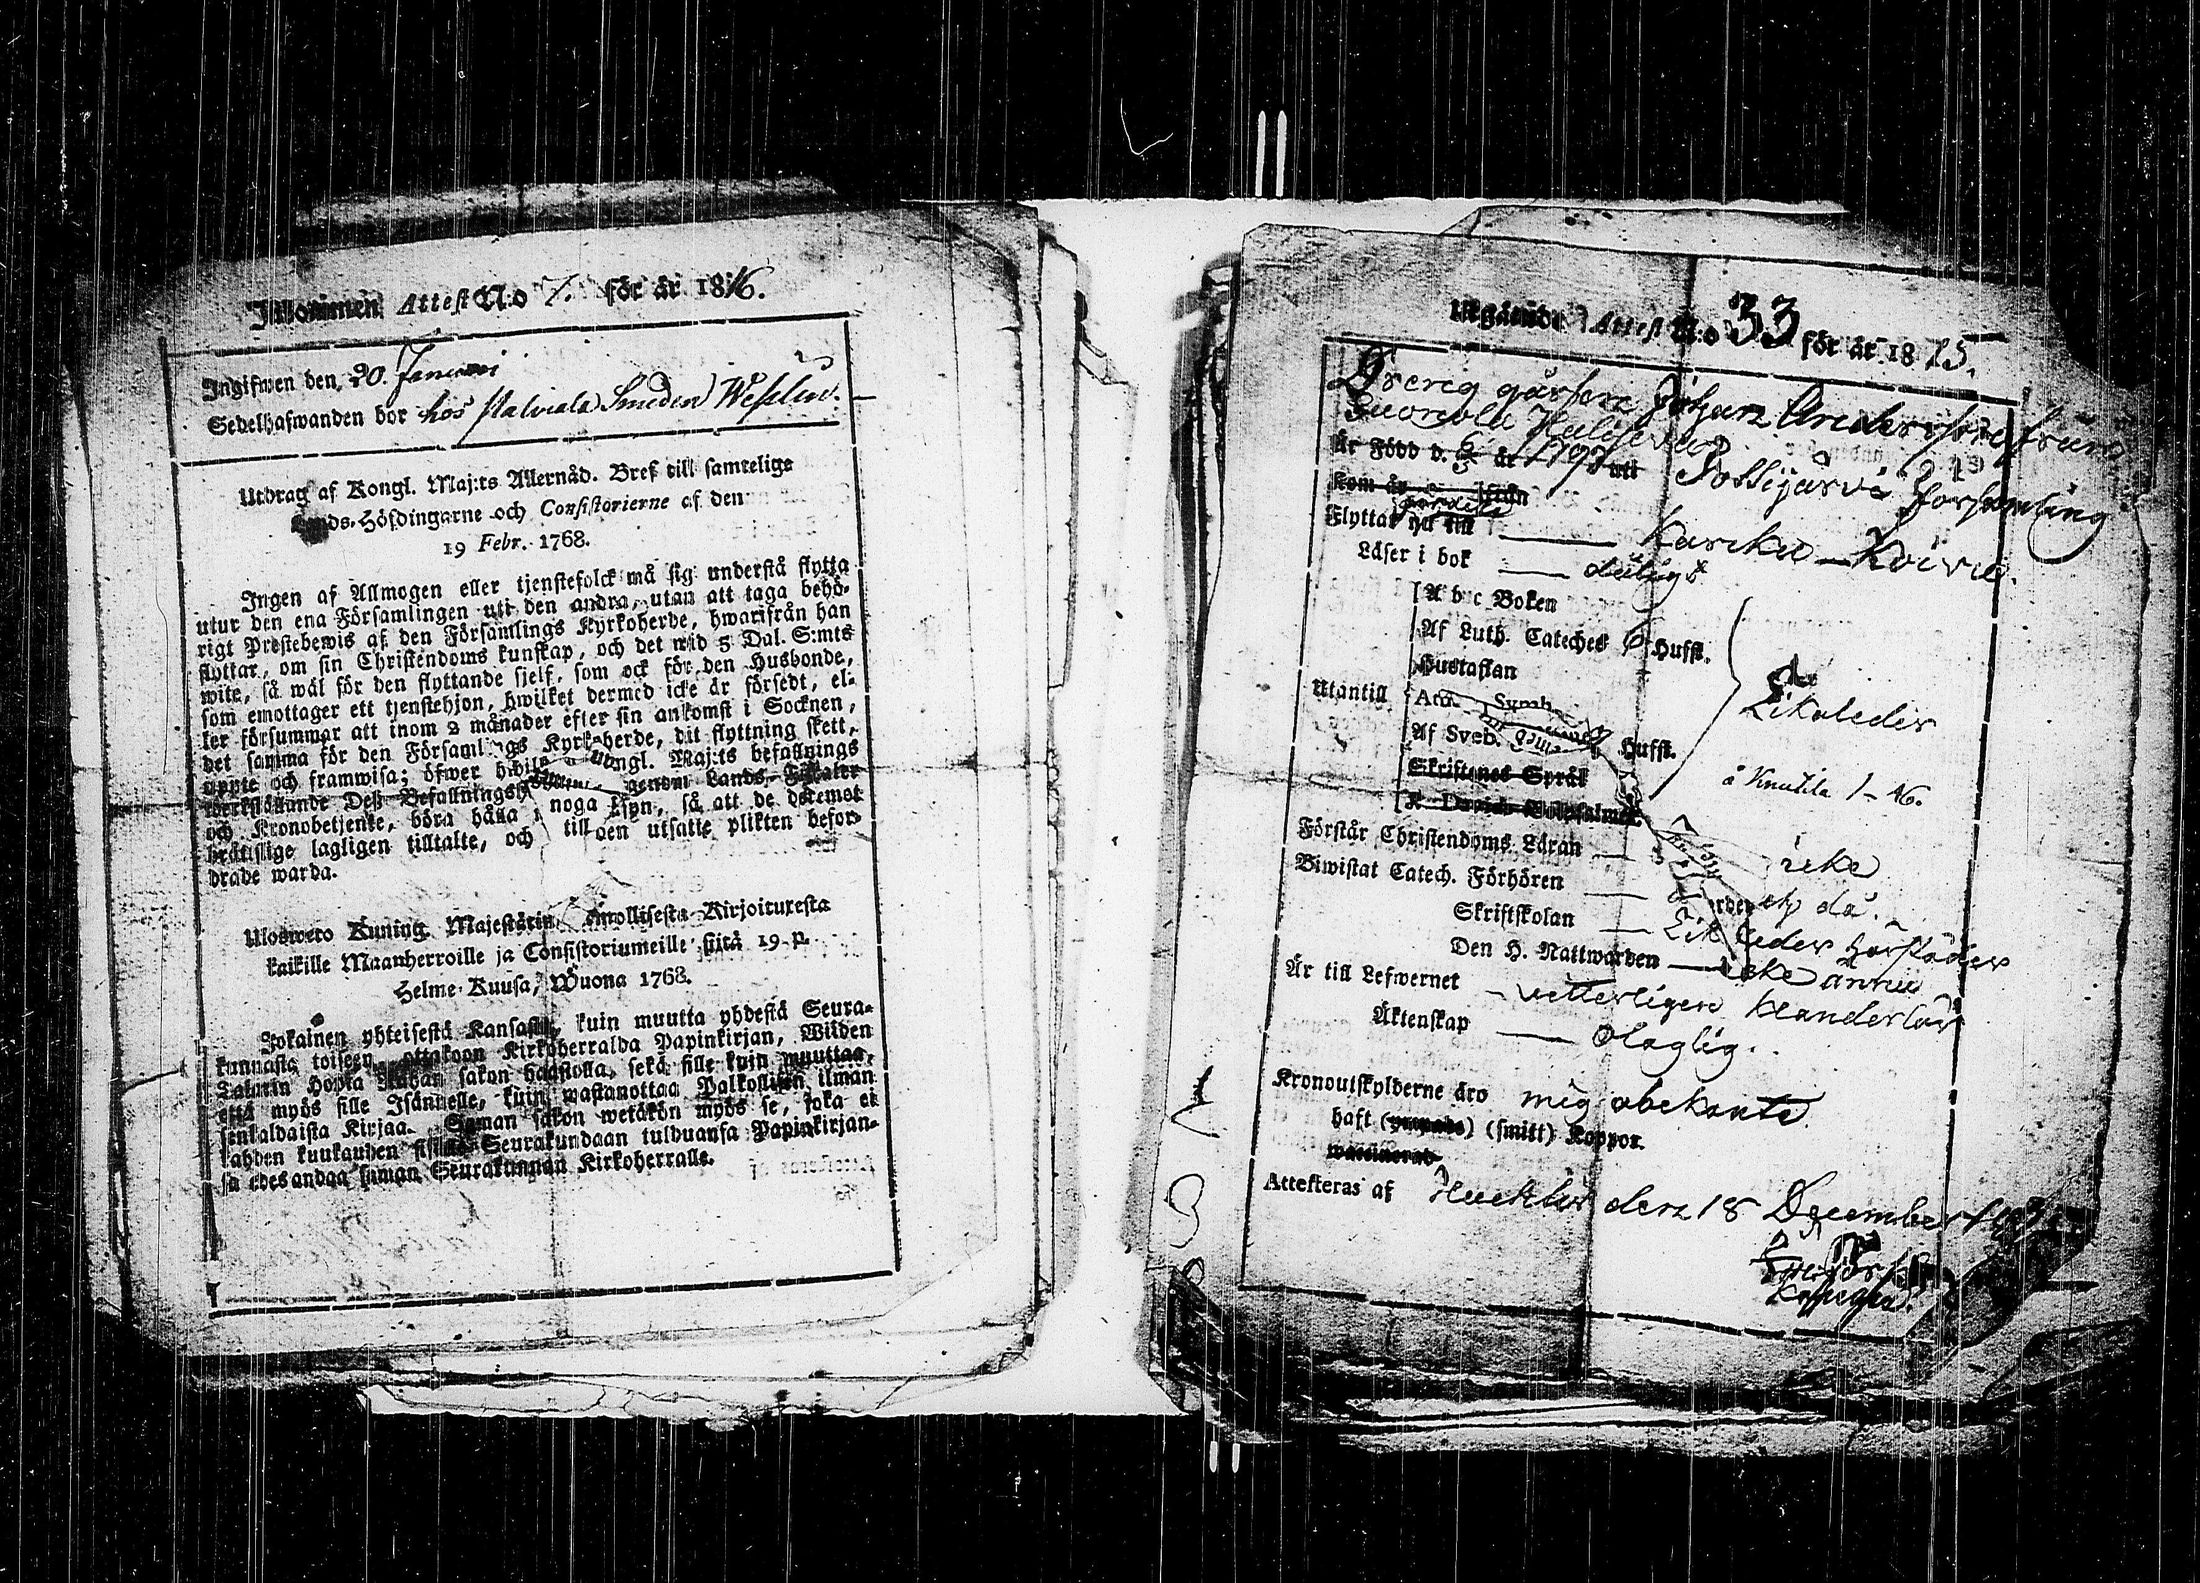 Inkommen Attest N:o 7. för år 1816.
Ingifwen den 20. Januari
Sedelhafwanden bor hos Palviala Smeden Weselin.
Utdrag af Kongl. Maj:ts Allernåd. Bref till samtelige
Lands-Höfdingarne och Consistorierne af den
19 Febr. 1768.
Ingen af Allmogen eller tjenstefolck må sig understå flytta
utur den ena Församlingen uti den andra, utan att taga behö-
rigt Prestebewis af den Församlings Kyrkoherde, hwarifrån han
flyttar, om sin Christendoms kunskap, och det wid 5 Dal. S:mts
wite, så wäl för den flyttande sjelf, som ock för den Husbonde,
som emottager ett tjenstehjon, hwilket dermed icke är försedt, el-
ler försummar att inom 2 månader efter sin ankomst i Socknen,
det samma för den Församlings Kyrkoherde, dit flyttning skett,
uppte och framwisa; öfwer hwilk Kongl. Maj:ts befallnings
werkställande Deß Befallningsh genom Lands-Fiskaler
och Kronobetjente, böra hålla noga insyn, så att de deremot
brättslige lagligen tilltalte, och till den utsatte plikten befor-
drade warda.
Uloswero Kuning. Majestätin Armollisesta Kirjoituxesta
kaikille Maanherroille ja Consistoriumeille siitä 19 p.
Helme-Kuusa, Wuona 1768.
Jokainen yhteisestä Kansasta, kuin muutta yhdestä Seura-
kunnasta toiseen, ottakoon Kirkoherralda Papinkirjan, Wiiden
Talarin Hopia Rahan sakon haastolla, sekä sille kuin muuttaa,
että myös sille Isännelle, kuin wastanottaa Palkollisen ilman
senkaldaista Kirjaa. Saman sakon wetäkön myös se, joka ei
kahden kuukauden sisällä Seurakundaan tulduansa Papinkirjan-
sa edesandaa saman Seurakunnan Kirkoherralle.
Utgående Attest N:o 33 för år 1815.
Dreng gåssen Johan Andersson från
Suoniola
Är Född d. 6/5 år 1797 uti Påssijärvi församling
Kom år från
Flyttar nu till Karku Koivu.
Läser i bok dåligt
A b c Boken
Af Luth. Cateches 6 Hufst.
Hustaflan
Utantill Ath. Symb.
Likaledes
Af Sveb. Hufst.
å Knutila 1–16.
Skriftenes Språk
K. Davids Botpsalmer
Förstår Christendoms Läran icke
Biwistat Catech. Förhören då.
Skriftskolan Likaledes härstädes
Den H. Nattwarden icke ännu
Är till Lefwernet vetterligen klanderlös
Äktenskap Olaglig.
Kronoutskylderne äro mig obekante
haft (ympade) (smitt) Koppor.
waccinerad
Attesteras af den 18 December